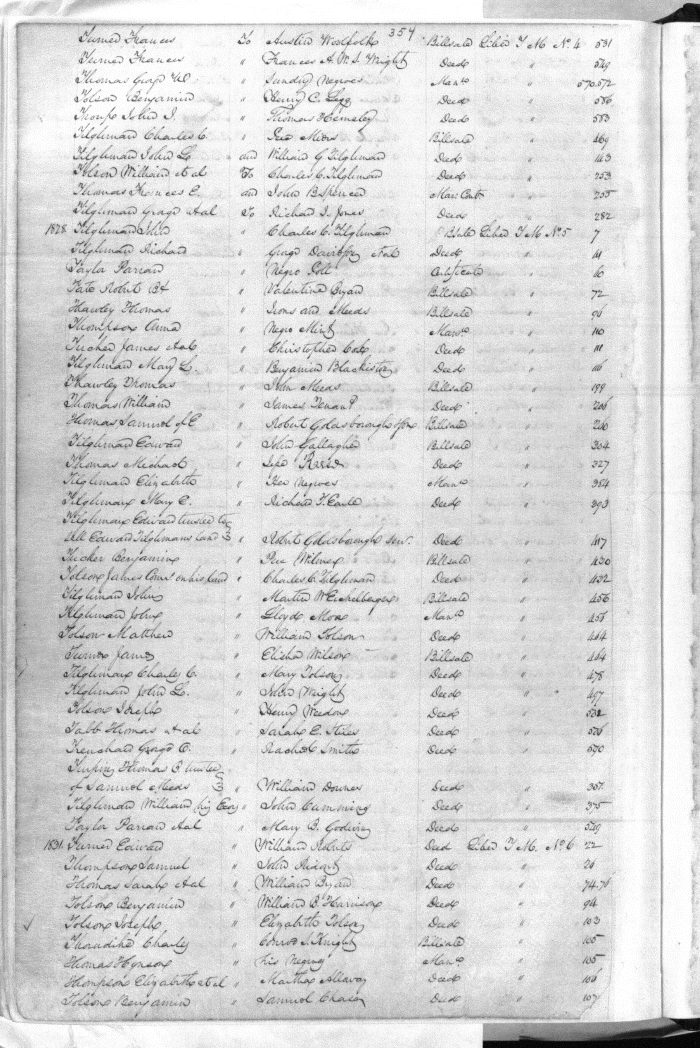 354
Turner Frances To Austin Woolfolk Billsale Liber T M No. 4 531
Turner Frances " Frances A. W. S. Wright Deed " 549
Thomas " Sundry Negroes Mano " 570.572
Tolson Benjamin " Henry C. Legg Deed " 586
John I. " Thomas Hemsley Deed " 583
Tilghman Charles C. " Meeds Billsale " 469
Tilghman John L. and William G. Tilghman Deed " 143
Tolson William et al To Charles C. Tilghman Deed " 253
Thomas Frances E. and John B. Spencer Mar. Cont. " 255
Tilghman et al To Richard I. Jones Deed " 282
1828 Tilghman John " Charles C. Tilghman B Sale Liber T M No. 5 7
Tilghman Richard " Davidson et al Deed " 41
Parran " Negro Poll Certificate " 16
Tate Robert " Valentine Bryan Billsale " 72
Thawley Thomas " Irons and Meeds Billsale " 96
Thompson Anna " Negro Mint Mano " 110
Tucker James et al " Christopher Cox Deed " 111
Tilghman Mary L. " Benjamin Blackiston Deed " 116
Thawley Thomas " John Meeds Billsale " 199
Thomas William " James Tenant Deed " 206
Thomas Samuel of E " Robert Goldsborough Billsale " 260
Tilghman Edward " John Gallagher Billsale " 304
Thomas Michael " Reed Deed " 327
Tilghman Elizabeth " Her Negroes Mano " 384
Tilghman Mary C. " Richard T. Earle Deed " 393
Tilghman Edward trustee to
sell Edward Tilghmans land " Robert Goldsborough Senr. Deed " 417
Thicker Benjamin " Pere Wilmer Billsale " 430
Tolson James on his land " Charles C. Tilghman Deed " 432
Tilghman John " Martin W. E. Billsale " 456
Tilghman John " Lloyd Mano " 458
Tolson Matthew " William Tolson Deed " 464
Turner James " Elisha Wilson Billsale " 464
Tilghman Charles C. " Mary Tolson Deed " 478
Tilghman John L. " John Wright Deed " 497
Tolson Joseph " Henry Weedon Deed " 532
Tabb Thomas et al " Sarah E. Deed "
Trenchard George C. " Rachel Smith Deed " 570
Turpin Thomas trustee
of Samuel Meeds " William Downes Deed " 357
Tilghman William his Exor " John Cumming Deed " 375
Parran et al " Mary B. Godwin Deed " 549
1831. Turner Edward " William Roberts Deed Liber T M. No. 6 22
Thompson Samuel " John Deed " 26
Thomas Sarah et al " William Bryan Deed " 74.76
Tolson Benjamin " William B. Harrison Deed " 94
Tolson Joseph " Elizabeth Tolson Deed " 103
Thorndike Charles " I. Knight Billsale " 105
Thomas Hynson " his Negroes Mano " 105
Thompson Elizabeth et al " Martha Deed " 106
Tolson Benjamin " Samuel Deed " 107